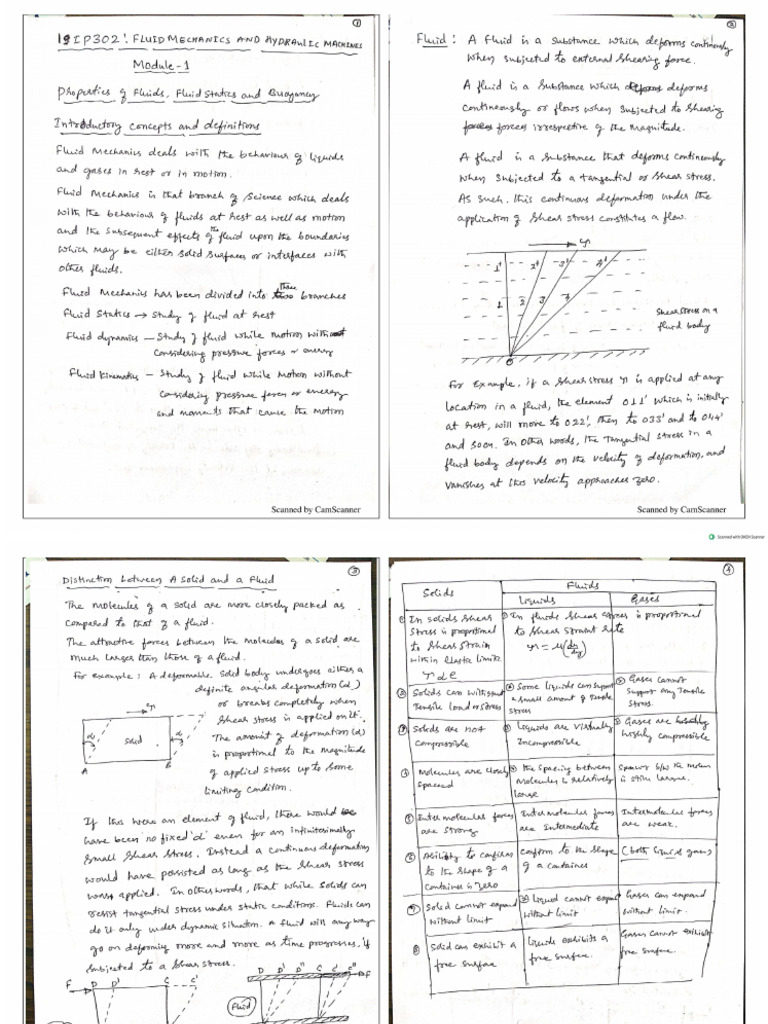 ①
19IP302: FLUID MECHANICS AND HYDRAULIC MACHINES
Module-1
Properties of Fluids, Fluid Statics and Buoyancy
Introductory concepts and definitions
Fluid Mechanics deals with the behaviour of liquids
and gases in rest or in motion.
Fluid Mechanics is that branch of science which deals
with the behaviour of fluids at rest as well as motion
and the subsequent effects of the fluid upon the boundaries
which may be either solid surfaces or interfaces with
other fluids.
Fluid Mechanics has been divided into three branches
Fluid Statics → Study of fluid at rest
Fluid dynamics – Study of fluid while motion with
considering pressure forces or energy
Fluid kinematics – Study of fluid while motion without
considering pressure forces or energy
and moments that cause the motion
Scanned by CamScanner
②
Fluid : A Fluid is a substance which deforms continously
when subjected to external shearing force.
A fluid is a substance which deforms
continuously or flows when subjected to shearing
forces irrespective of the magnitude.
A fluid is a substance that deforms continuously
when subjected to a tangential or shear stress.
As such, this continuous deformation under the
application of shear stress constitutes a flow.
1' 2' 3' 4'
1 2 3 4
Shear stress on a
fluid body
O
For example, if a shear stress τ is applied at any
location in a fluid, the element 011' which is initially
at rest, will move to 022', then to 033' and to 044'
and so on. In other words, the tangential stress in a
fluid body depends on the velocity of deformation, and
vanishes at this velocity approaches zero.
Scanned by CamScanner
Scanned with OKEN Scanner
③
Distinction between A Solid and a Fluid
The molecules of a solid are more closely packed as
compared to that of a fluid.
The attractive forces between the molecules of a solid are
much larger than those of a fluid.
For example : A deformable solid body undergoes either a
definite angular deformation (α)
or breaks completely when
shear stress is applied on it.
The amount of deformation (α)
is proportional to the magnitude
of applied stress up to some
limiting condition.
α solid α
A B
If this were an element of fluid, there would
have been no fixed 'α' even for an infinitesimally
small shear stress. Instead a continuous deformation
would have persisted as long as the shear stress
was applied. In other words, that while solids can
resist tangential stress under static conditions. Fluids can
do it only under dynamic situation. A fluid will any way
go on deforming more and more as time progresses, if
subjected to a shear stress.
F D D' C C'
D D' D" C C' C" F
Fluid
④
Solids
Fluids
Liquids
Gases
① In solids shear
stress is proportional
to shear strain
within elastic limits
① In fluids shear stress is proportional
to shear strain rate
τ = μ(du/dy)
② Solids can withstand
Tensile load or stress
② Some liquids can support
a small amount of tensile
stress
② Gases cannot
support any tensile
stress.
③ Solids are not
compressible
③ Liquids are virtually
Incompressible
③ Gases are
highly compressible
④ Molecules are closely
spaced
④ The spacing between
molecules is relatively
large
Spacing b/w the molecules
is still larger.
⑤ Intermolecular forces
are strong
Intermolecular forces
are Intermediate
Intermolecular forces
are weak.
⑥ Ability to confirm
to the shape of a
container is zero
confirm to the shape
of a container
(both liquid & gases)
⑦ Solid cannot expand
without limit
⑦ Liquid cannot expand
without limit
Gases can expand
without limit.
⑧ Solid can exhibit a
free surface
Liquids exhibits a
free surface.
Gases cannot exhibit
free surface.